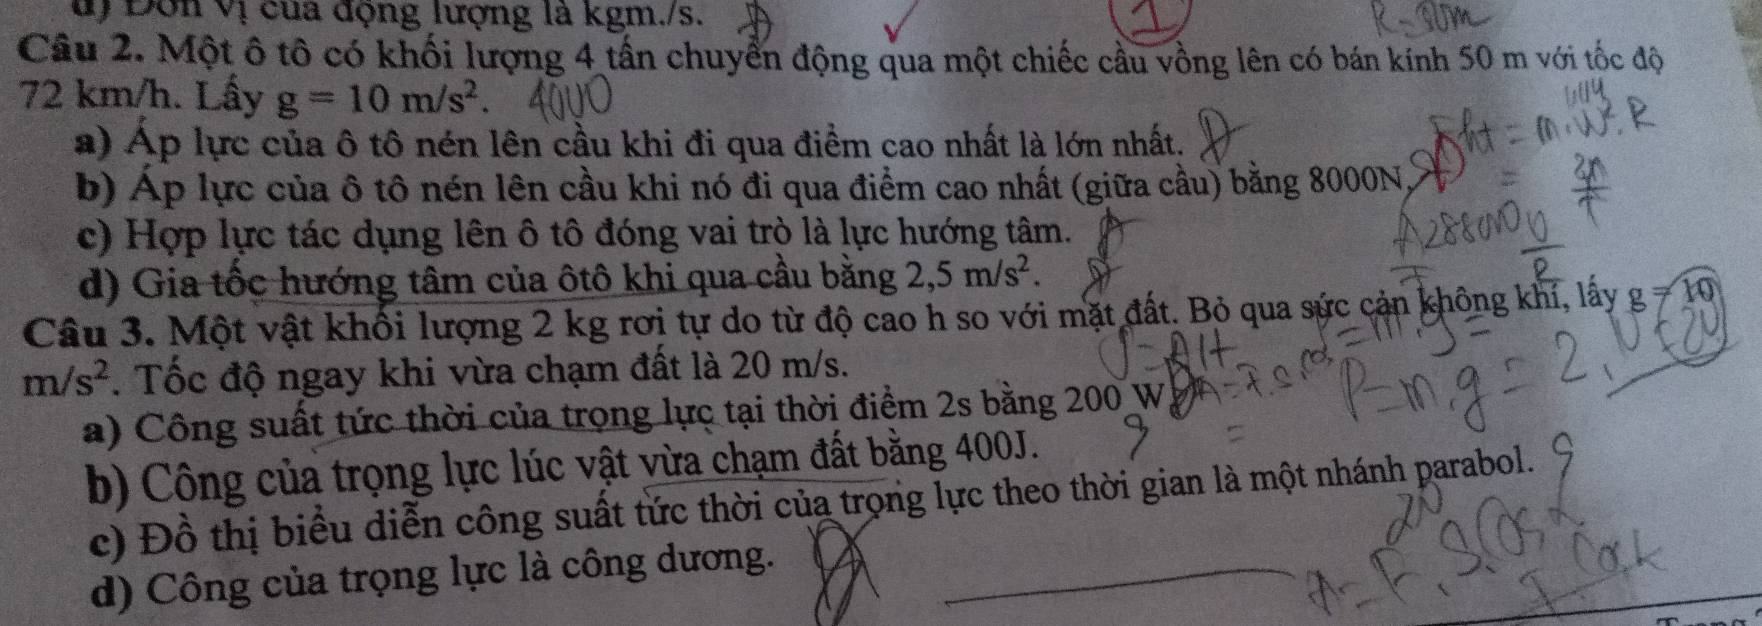 d) Đơn vị của động lượng là kgm./s. Đ
1 R = 50m
Câu 2. Một ô tô có khối lượng 4 tấn chuyển động qua một chiếc cầu vồng lên có bán kính 50 m với tốc độ
72 km/h. Lấy g = 10 m/s². 4000
a) Áp lực của ô tô nén lên cầu khi đi qua điểm cao nhất là lớn nhất. Đ
b) Áp lực của ô tô nén lên cầu khi nó đi qua điểm cao nhất (giữa cầu) bằng 8000N.
Fht = m.W².R
c) Hợp lực tác dụng lên ô tô đóng vai trò là lực hướng tâm. Đ
d) Gia tốc hướng tâm của ôtô khi qua cầu bằng 2,5 m/s².
Câu 3. Một vật khối lượng 2 kg rơi tự do từ độ cao h so với mặt đất. Bỏ qua sức cản không khí, lấy g = 10
m/s². Tốc độ ngay khi vừa chạm đất là 20 m/s.
P = m.g = 2.
a) Công suất tức thời của trọng lực tại thời điểm 2s bằng 200 W
b) Công của trọng lực lúc vật vừa chạm đất bằng 400J. ?
c) Đồ thị biểu diễn công suất tức thời của trọng lực theo thời gian là một nhánh parabol. ?
d) Công của trọng lực là công dương. Đ
A = F.S.Cos